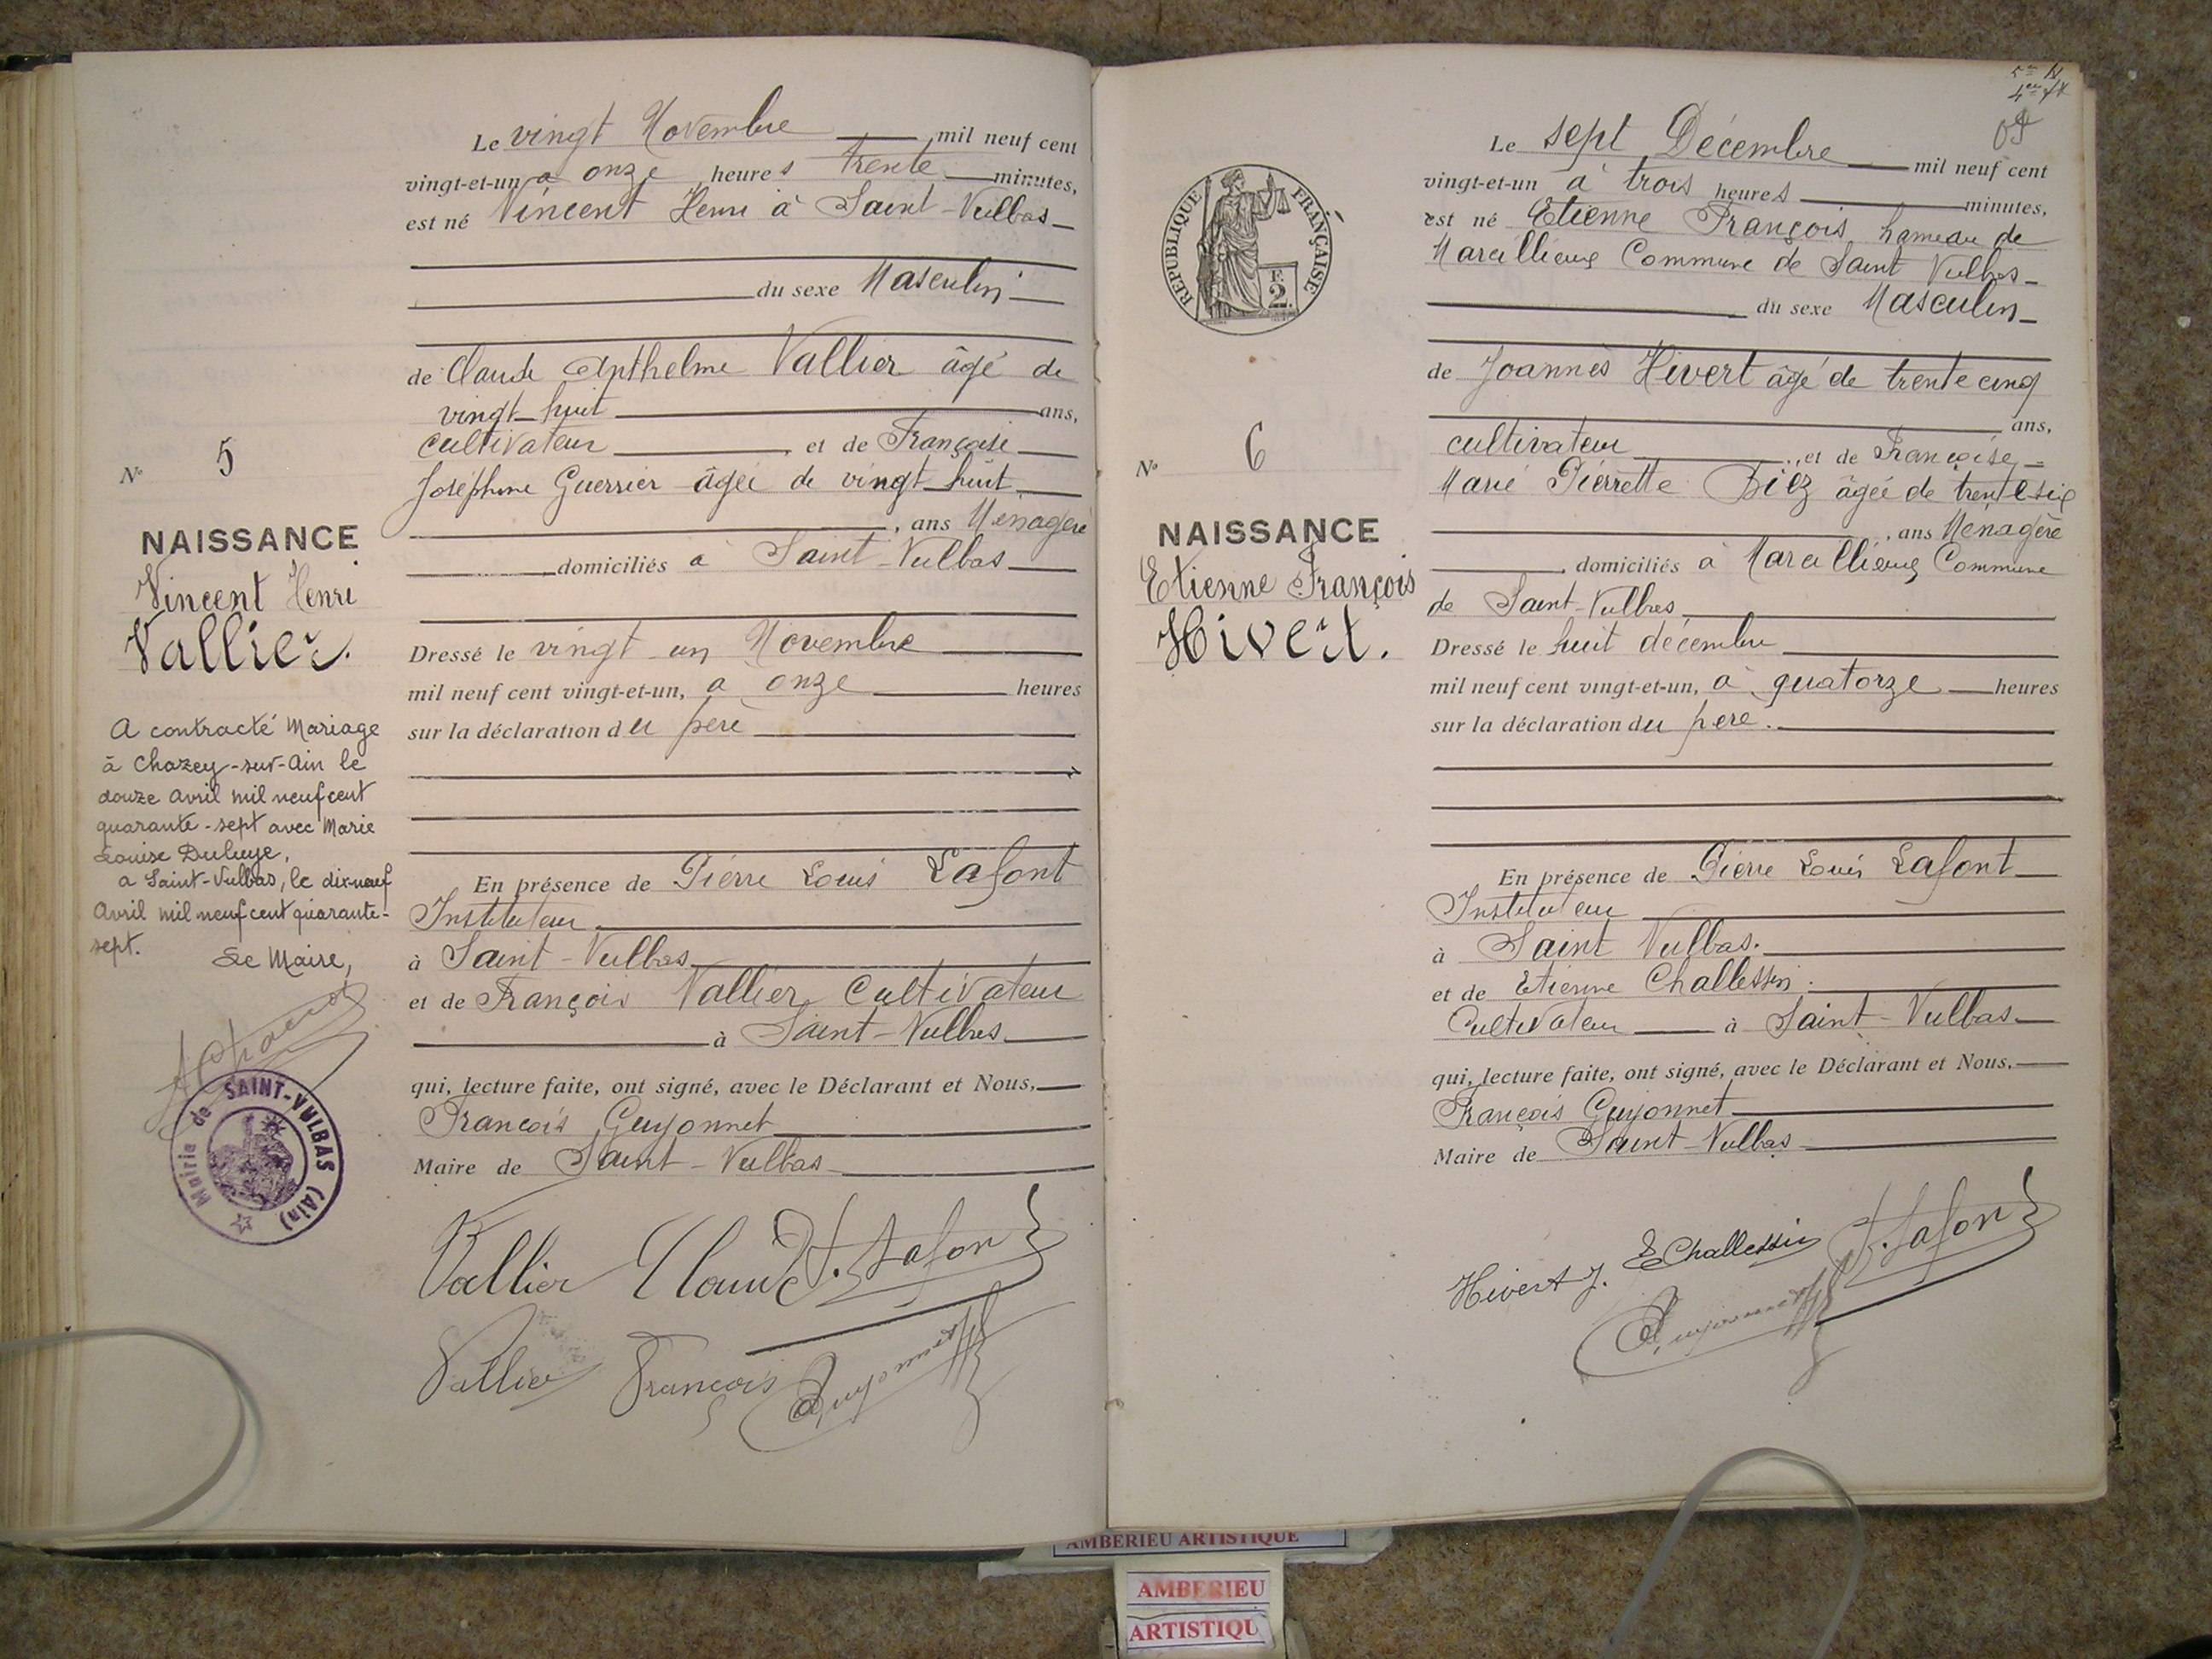 Le vingt Novembre mil neuf cent
vingt-et-un à onze heures trente minutes,
est né Vincent Henri à Saint-Vulbas
du sexe Masculin
de Claude Anthelme Vallier âgé de
vingt-huit ans,
cultivateur, et de Françoise
Joséphine Guerrier âgée de vingt-huit
, ans Ménagère
domiciliés à Saint-Vulbas
Dressé le vingt un Novembre
mil neuf cent vingt-et-un, à onze heures
sur la déclaration du père
En présence de Pierre Louis Lafont
Instituteur
à Saint-Vulbas
et de François Vallier, Cultivateur
à Saint-Vulbas
qui, lecture faite, ont signé, avec le Déclarant et Nous,
François Guyonnet
Maire de Saint-Vulbas
Vallier Claude P. Lafont
Vallier François Guyonnet
N° 5
NAISSANCE
Vincent Henri
Vallier.
A contracté Mariage
à Chazey-sur-Ain le
douze avril mil neuf cent
quarante-sept avec Marie
Louise
a Saint-Vulbas, le dix-neuf
Avril mil neuf cent quarante-
sept.
Le Maire,
Mairie de SAINT-VULBAS (Ain)
Le sept Décembre mil neuf cent
vingt-et-un à trois heures minutes,
est né Etienne François, hameau de
Marcillieux Commune de Saint Vulbas
du sexe Masculin
de Joannès Hivert âgé de trente cinq
ans,
cultivateur, et de Françoise
Marie Pierrette âgée de trente six
, ans Ménagère
, domiciliés à Marcillieux Commune
de Saint-Vulbas
Dressé le huit décembre
mil neuf cent vingt-et-un, à quatorze heures
sur la déclaration du père.
En présence de Pierre Louis Lafont
Instituteur
à Saint Vulbas.
et de Etienne Challessin.
Cultivateur à Saint-Vulbas
qui, lecture faite, ont signé, avec le Déclarant et Nous,
François Guyonnet
Maire de Saint-Vulbas
Hivert J. E Challessin P. Lafont
Guyonnet
RÉPUBLIQUE FRANÇAISE
F.
2
N° 6
NAISSANCE
Etienne François
Hivert.
AMBERIEU ARTISTIQUE
AMBERIEU
ARTISTIQU